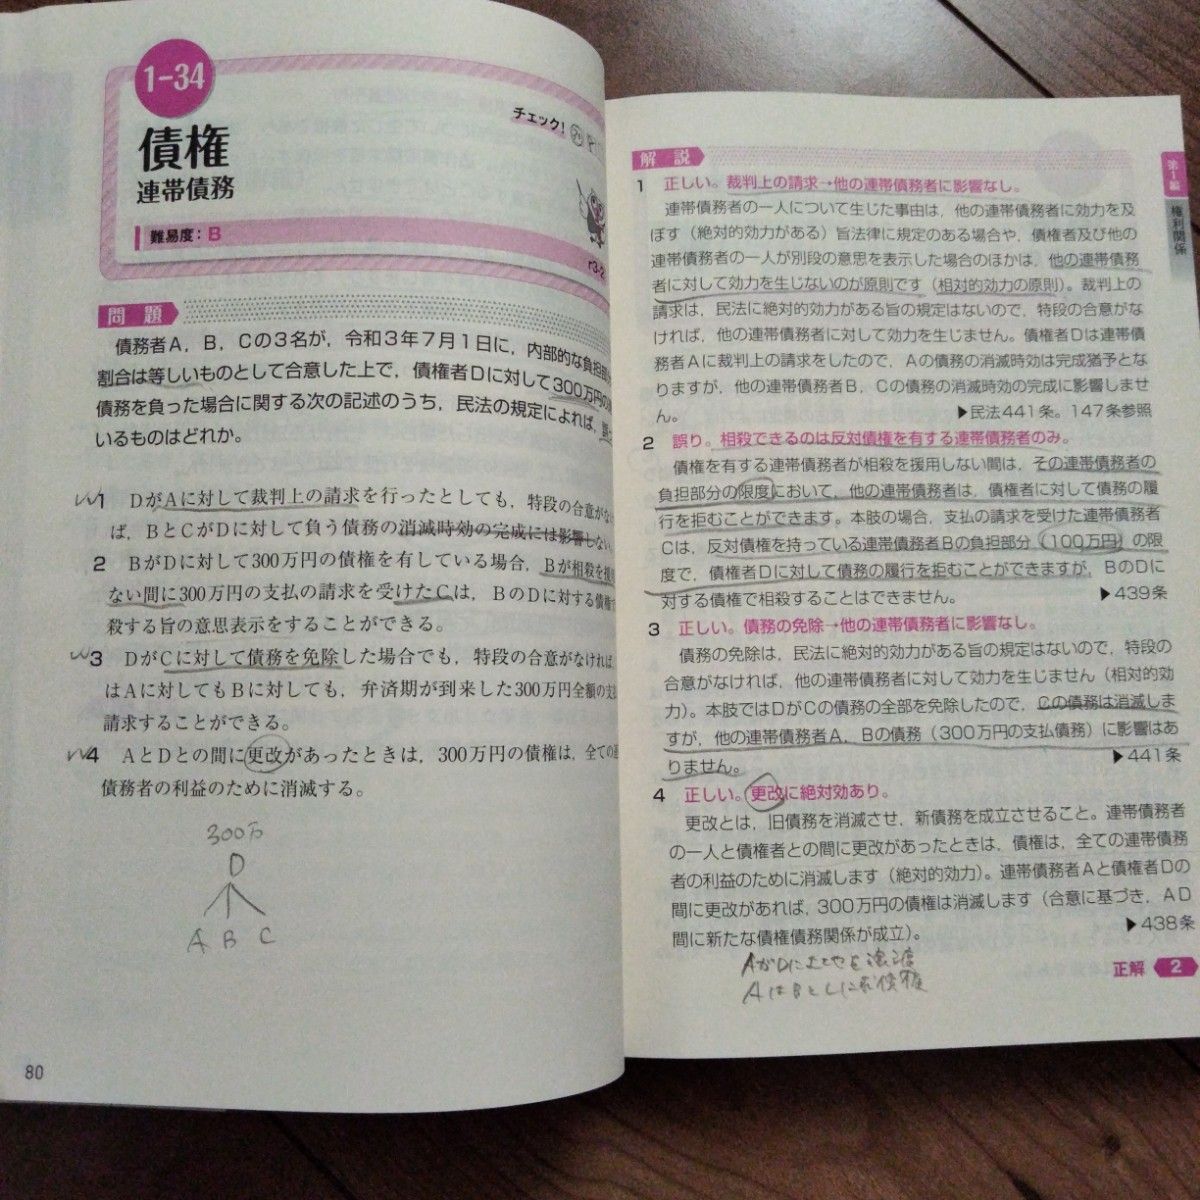 1-34
債権
連帯債務
チェック!
難易度:B
r3-2
問題
債務者A,B,Cの3名が,令和3年7月1日に,内部的な負担部
割合は等しいものとして合意した上で,債権者Dに対して300万円の
債務を負った場合に関する次の記述のうち,民法の規定によれば,誤
いるものはどれか。
1 DがAに対して裁判上の請求を行ったとしても,特段の合意がな
ば,BとCがDに対して負う債務の消滅時効の完成には影響しない。
2 BがDに対して300万円の債権を有している場合,Bが相殺を援
ない間に300万円の支払の請求を受けたCは,BのDに対する債権
殺する旨の意思表示をすることができる。
3 DがCに対して債務を免除した場合でも,特段の合意がなければ,
はAに対してもBに対しても,弁済期が到来した300万円全額の支
請求することができる。
4 AとDとの間に更改があったときは,300万円の債権は,全ての
債務者の利益のために消滅する。
300万
D
A B C
80
解説
1 正しい。裁判上の請求→他の連帯債務者に影響なし。
連帯債務者の一人について生じた事由は,他の連帯債務者に効力を及
ぼす(絶対的効力がある)旨法律に規定のある場合や,債権者及び他の
連帯債務者の一人が別段の意思を表示した場合のほかは,他の連帯債務
者に対して効力を生じないのが原則です(相対的効力の原則)。裁判上の
請求は,民法に絶対的効力がある旨の規定はないので,特段の合意がな
ければ,他の連帯債務者に対して効力を生じません。債権者Dは連帯債
務者Aに裁判上の請求をしたので,Aの債務の消滅時効は完成猶予とな
りますが,他の連帯債務者B,Cの債務の消滅時効の完成に影響しませ
ん。 ▶民法441条。147条参照
2 誤り。相殺できるのは反対債権を有する連帯債務者のみ。
債権を有する連帯債務者が相殺を援用しない間は,その連帯債務者の
負担部分の限度において,他の連帯債務者は,債権者に対して債務の履
行を拒むことができます。本肢の場合,支払の請求を受けた連帯債務者
Cは,反対債権を持っている連帯債務者Bの負担部分(100万円)の限
度で,債権者Dに対して債務の履行を拒むことができますが,BのDに
対する債権で相殺することはできません。 ▶439条
3 正しい。債務の免除→他の連帯債務者に影響なし。
債務の免除は,民法に絶対的効力がある旨の規定はないので,特段の
合意がなければ,他の連帯債務者に対して効力を生じません(相対的効
力)。本肢ではDがCの債務の全部を免除したので,Cの債務は消滅しま
すが,他の連帯債務者A,Bの債務(300万円の支払債務)に影響はあ
りません。 ▶441条
4 正しい。更改に絶対効あり。
更改とは,旧債務を消滅させ,新債務を成立させること。連帯債務者
の一人と債権者との間に更改があったときは,債権は,全ての連帯債務
者の利益のために消滅します(絶対的効力)。連帯債務者Aと債権者Dの
間に更改があれば,300万円の債権は消滅します(合意に基づき,AD
間に新たな債権債務関係が成立)。 ▶438条
正解 2
第1編
権利関係